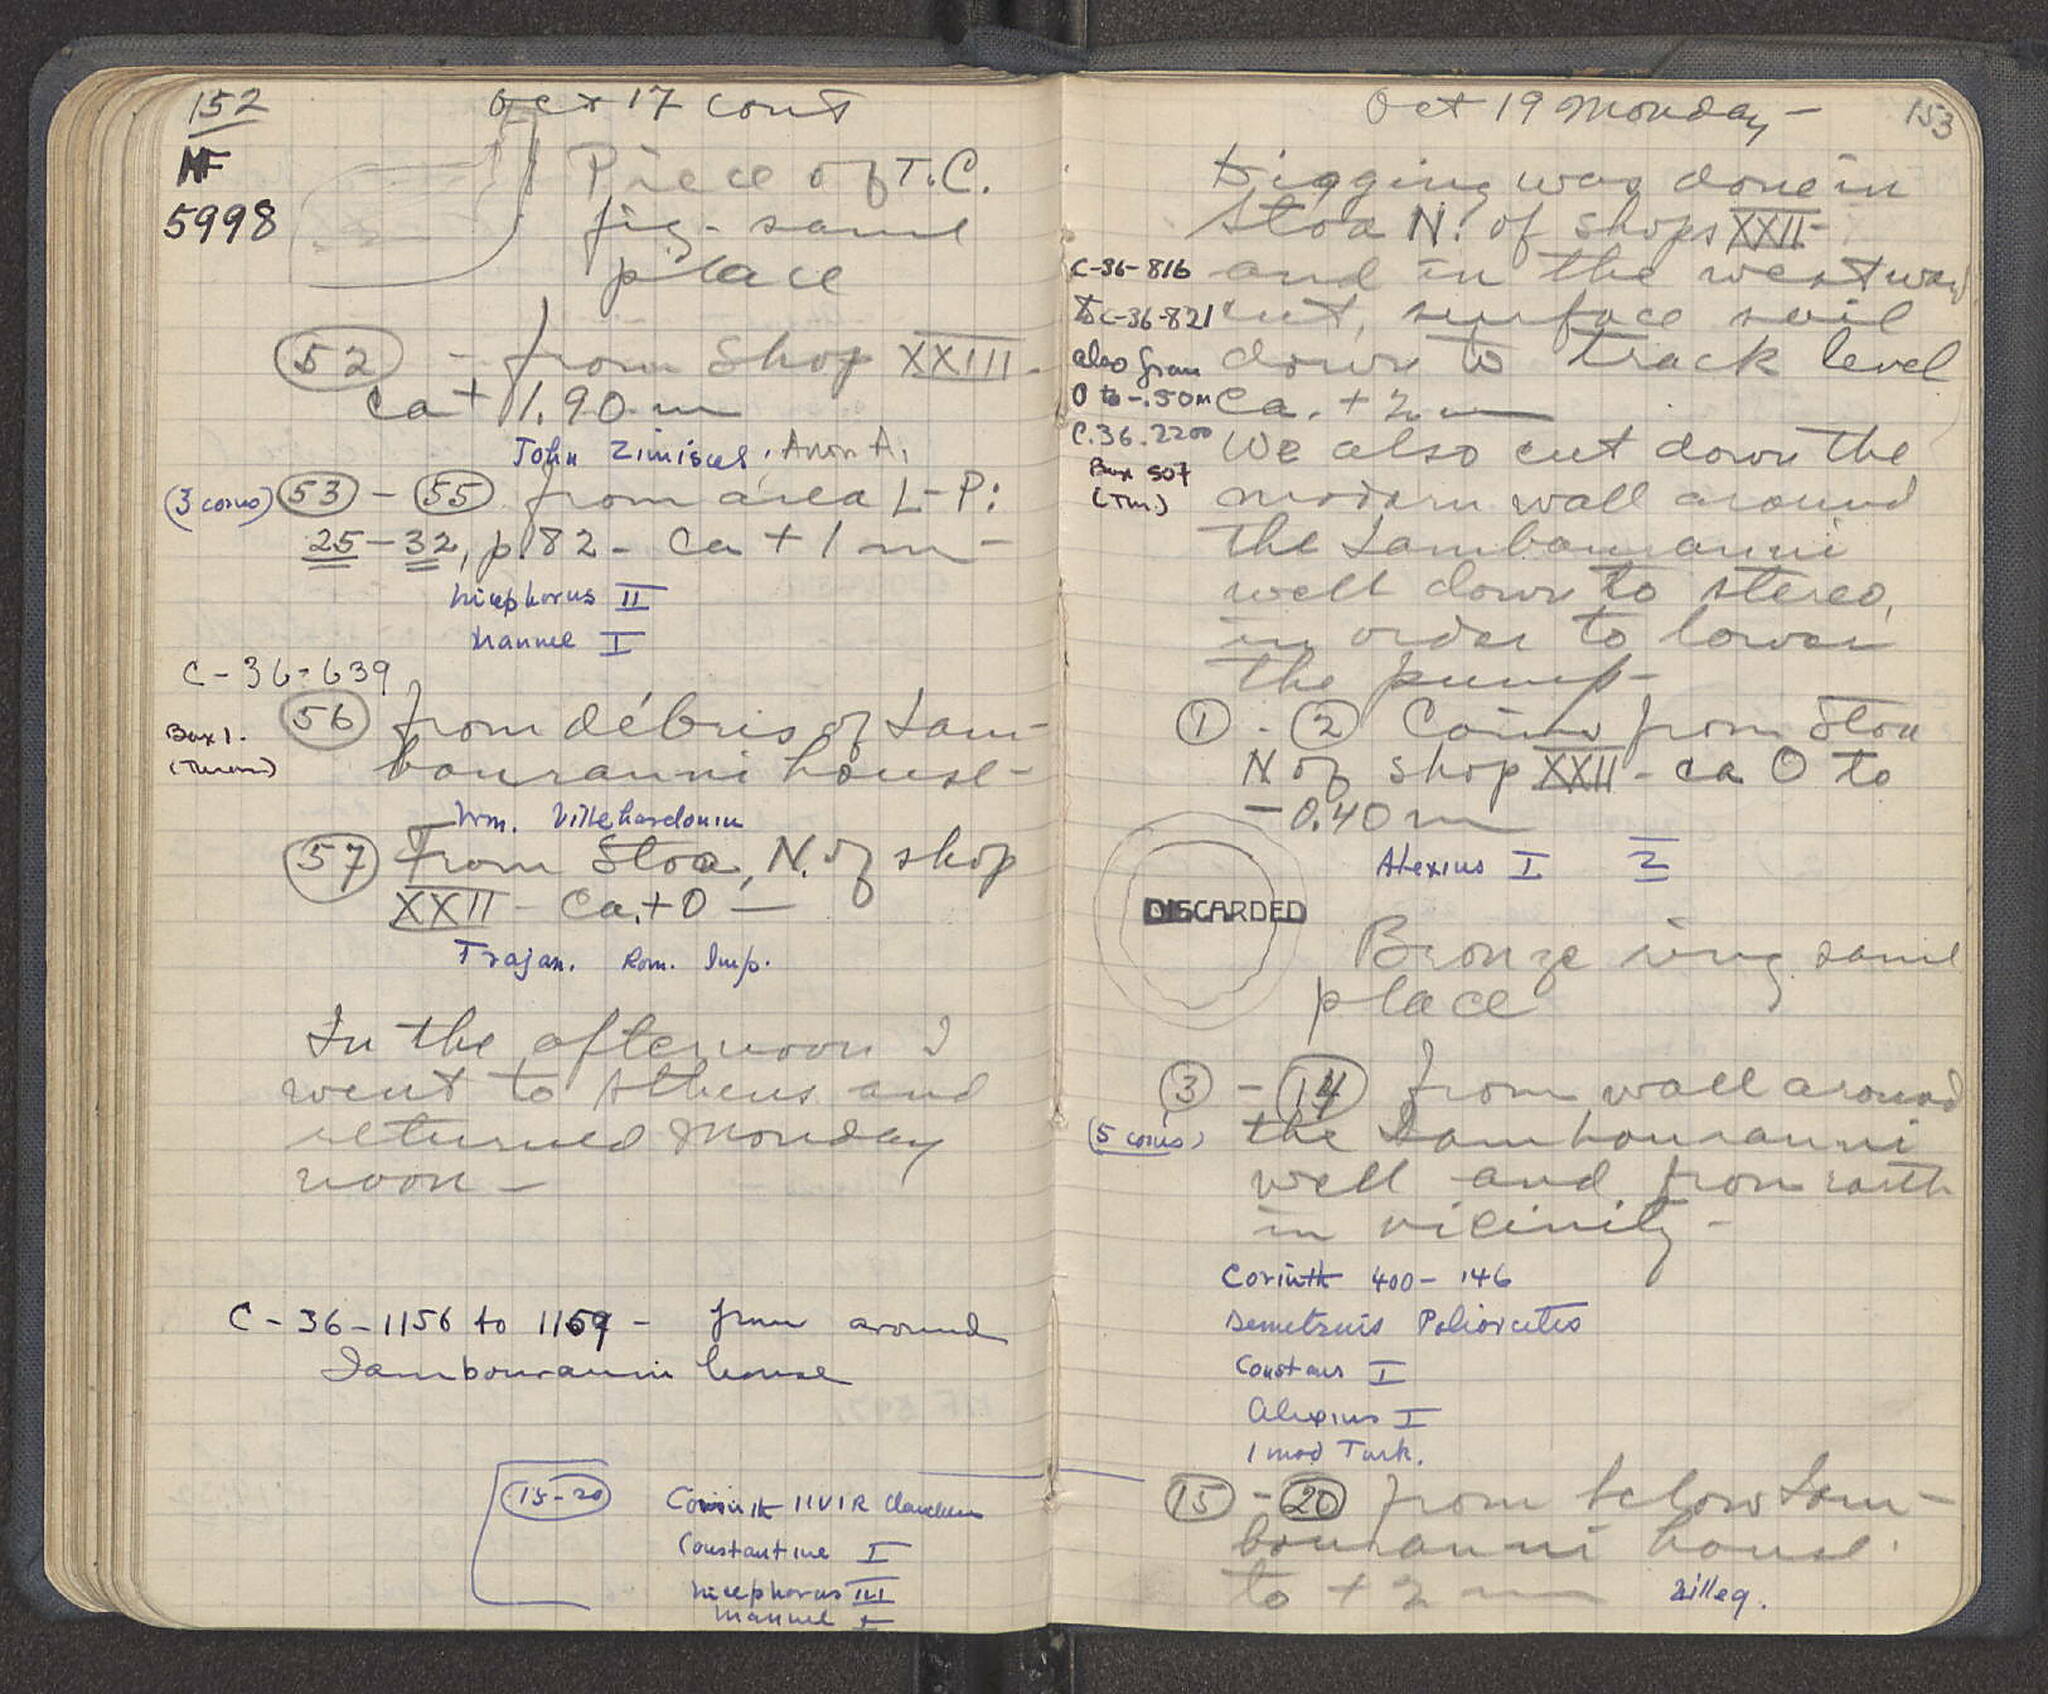 152
Oct 17 cont
MF
5998
Piece of T.C.
fig - same
place
52 - from Shop XXIII -
Ca + 1.90 m
John Zimisces, Anon A,
(3 coins) 53 - 55 from area L-P:
25-32, p. 82 - Ca + 1 m -
Nicephorus II
Manuel I
C-36-639
56 from débris of Tam-
Box 1.
bouranni house -
Wm. Villehardouin
57 From Stoa, N. of shop
XXII - Ca. + 0 -
Trajan. Rom. Imp.
In the afternoon I
went to Athens and
returned Monday
noon -
C-36-1156 to 1159 - from around
Tambouranni house
15-20 Corinth IIVIR
Constantine I
Nicephorus III
Manuel I
Oct 19 Monday -
153
Digging was done in
Stoa N. of shops XXII -
C-36-816
and in the westward
to C-36-821
cut, surface soil
also from
down to track level
0 to -.50m
Ca. + 2 m
C.36.2200
We also cut down the
Box 507
modern wall around
(Tm.)
the Tambouranni
well down to stereo,
in order to lower
the pump -
1 - 2 Coins from Stoa
N of shop XXII - ca 0 to
- 0.40 m
Alexius I 2
DISCARDED
Bronze ring same
place
3 - 14 from wall around
(5 coins) the Tambouranni
well and from earth
in vicinity -
Corinth 400 - 146
Demetrius Poliorcetes
Constans I
Alexius I
1 mod Turk.
15 - 20 from below Tam-
bouranni house
to + 2 m
2 illeg.